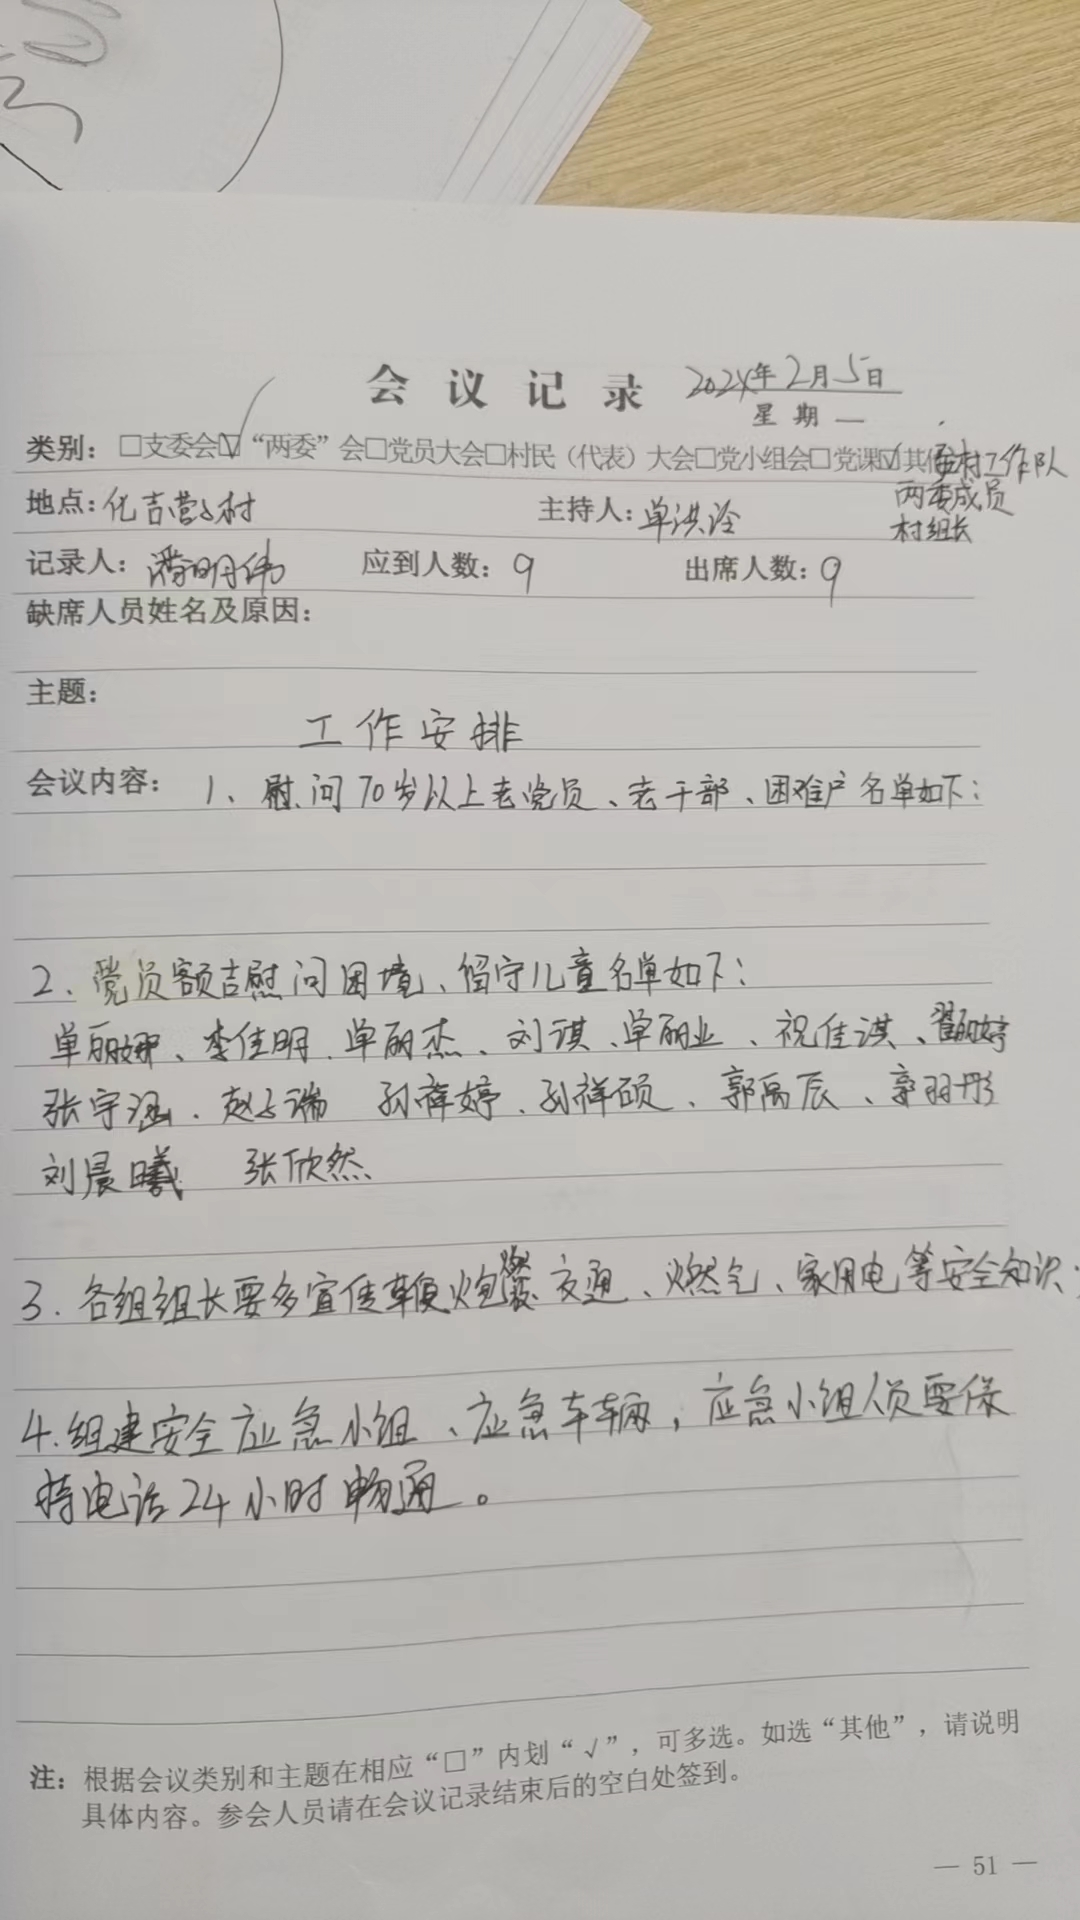 会议记录 2024年2月5日
星期一
类别：□支委会☑“两委”会□党员大会□村民（代表）大会□党小组会□党课☑其他驻村工作队
两委成员
村组长
地点：化吉营子村 主持人：单洪
记录人：潘明伟 应到人数：9 出席人数：9
缺席人员姓名及原因：
主题：
工作安排
会议内容：1、慰问70岁以上老党员、老干部、困难户名单如下：
2、党员额吉慰问困境、留守儿童名单如下：
单丽娜、李佳明、单丽杰、刘淇、单丽业、祝佳淇、婷
张宇涵、赵子瑞 孙祥婷、孙祥硕、郭禹辰、郭羽彤
刘晨曦 张欣然
3、各组组长要多宣传鞭炮燃放、交通、燃气、家用电等安全知识；
4.组建安全应急小组、应急车辆，应急小组人员要保
持电话24小时畅通。
注：根据会议类别和主题在相应“□”内划“√”，可多选。如选“其他”，请说明
具体内容。参会人员请在会议记录结束后的空白处签到。
— 51 —